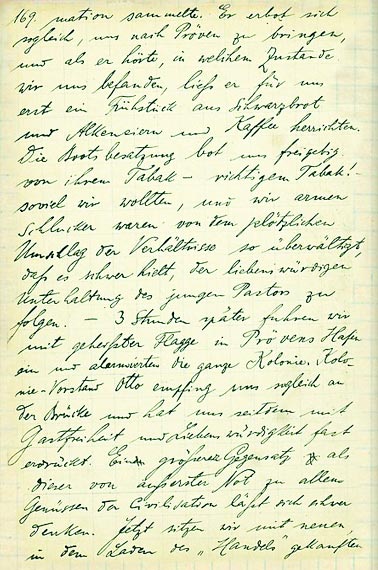 169. mation sammelte. Er erbot sich
sogleich, uns nach Pröven zu bringen,
und als er hörte, in welchem Zustande
wir uns befanden, ließ er für uns
erst ein Frühstück aus Schwarzbrot
und Alkeneiern und Kaffee herrichten.
Die Bootsbesatzung bot uns freigebig
von ihrem Tabak – richtigem Tabak! –
soviel wir wollten, und wir armen
Schlucker waren von dem plötzlichen
Umschlag der Verhältnisse so überwältigt,
daß es schwer hielt, der liebenswürdigen
Unterhaltung des jungen Pastors zu
folgen. – 3 Stunden später fuhren wir
mit gehisster Flagge in Prövens Hafen
ein und alarmierten die ganze Kolonie. Kolo-
nie-Vorstand Otto empfing uns sogleich an
der Brücke und hat uns seitdem mit
Gastfreiheit und Liebenswürdigkeit fast
erdrückt. Ein größerer Gegensatz als
dieser von äußerster Not zu allen
Genüssen der Civilisation läßt sich schwer
denken. Jetzt sitzen wir mit neuen,
in dem Laden des „Handels" gekauften